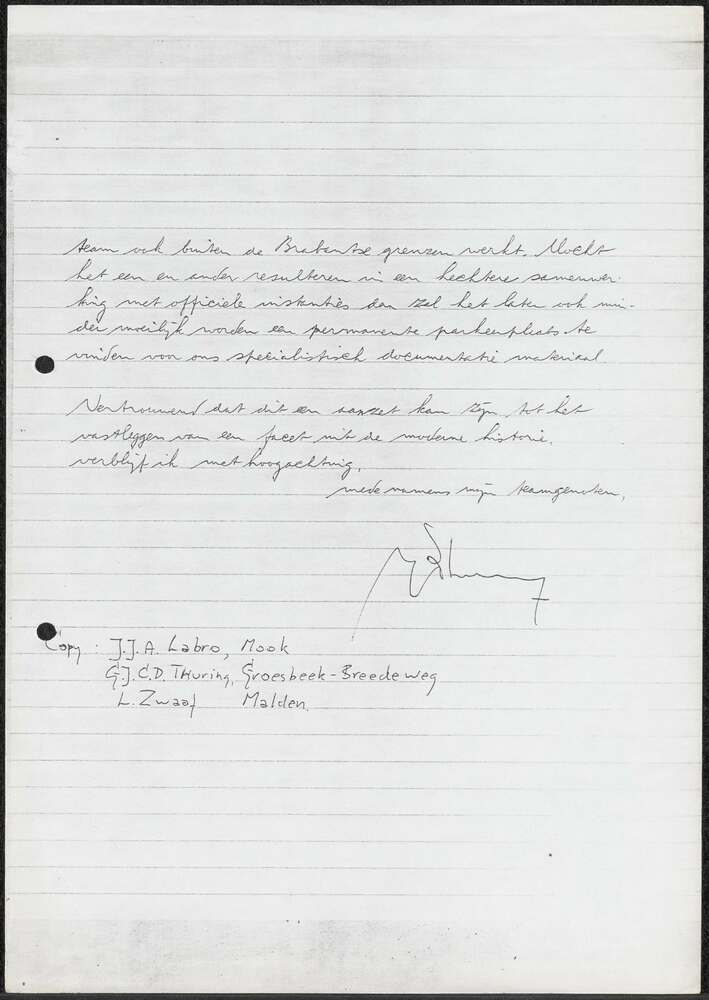 team ook buiten de Brabantse grenzen werkt. Mocht
het een en ander resulteren in een hechtere samenwer-
king met officiele instanties dan zal het later ook min-
der moeilijk worden een permanente parkeerplaats te
vinden voor ons specialistisch documentatie materiaal.
Vertrouwend dat dit een aanzet kan zijn tot het
vastleggen van een facet uit de moderne historie,
verblijf ik met hoogachting,
mede namens mijn teamgenoten,
Copy : J.J.A. Labro, Mook
G.J.C.D. Thuring, Groesbeek-Breedeweg
L. Zwaaf Malden.